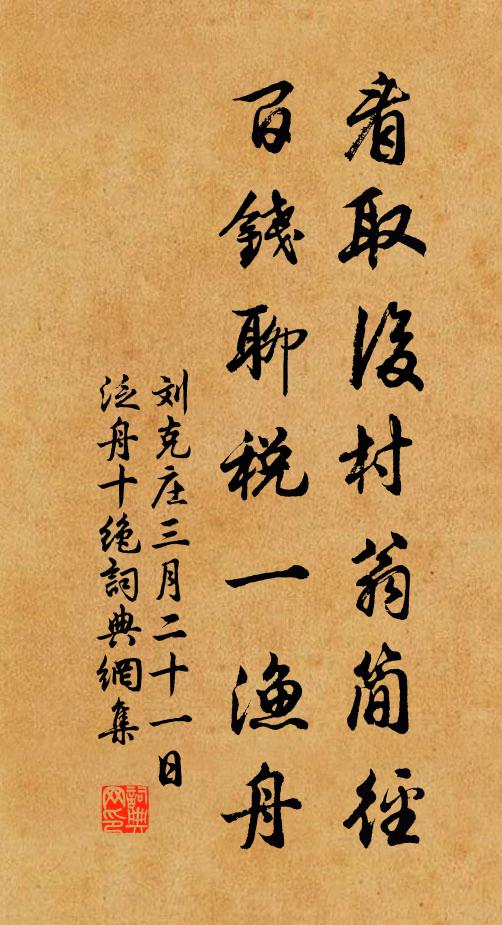 看取後村翁简徑
百錢聊税一漁舟
刘克庄三月二十一日
泛舟十绝詞典網集
詞典網印